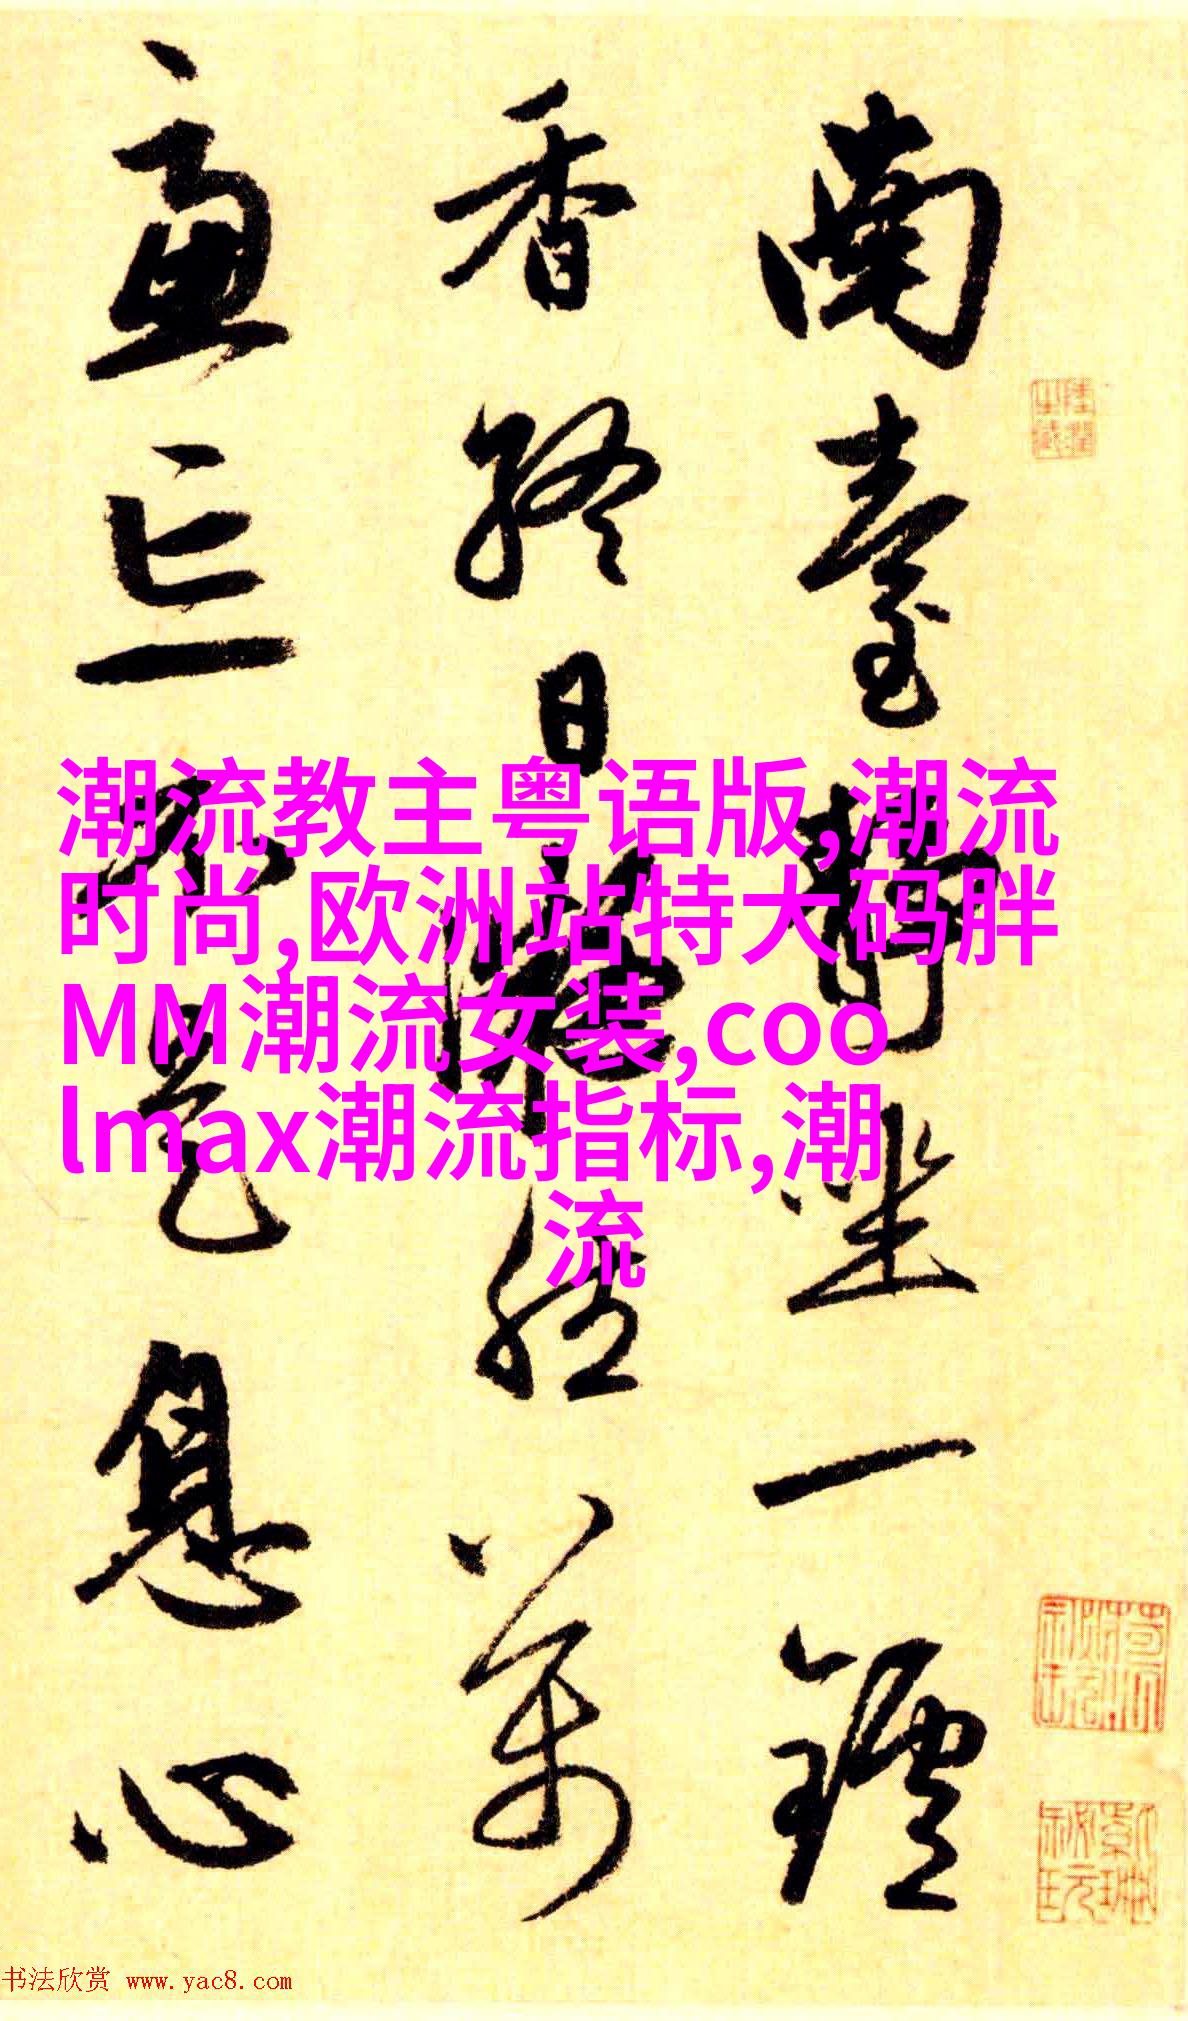 南臺靜坐一鑪
香終日凝然萬
慮忘不是息心
潮流教主粤语版,潮流
时尚,欧洲站特大码胖
MM潮流女装,coo
lmax潮流指标,潮
流
书法欣赏 www.yac8.com